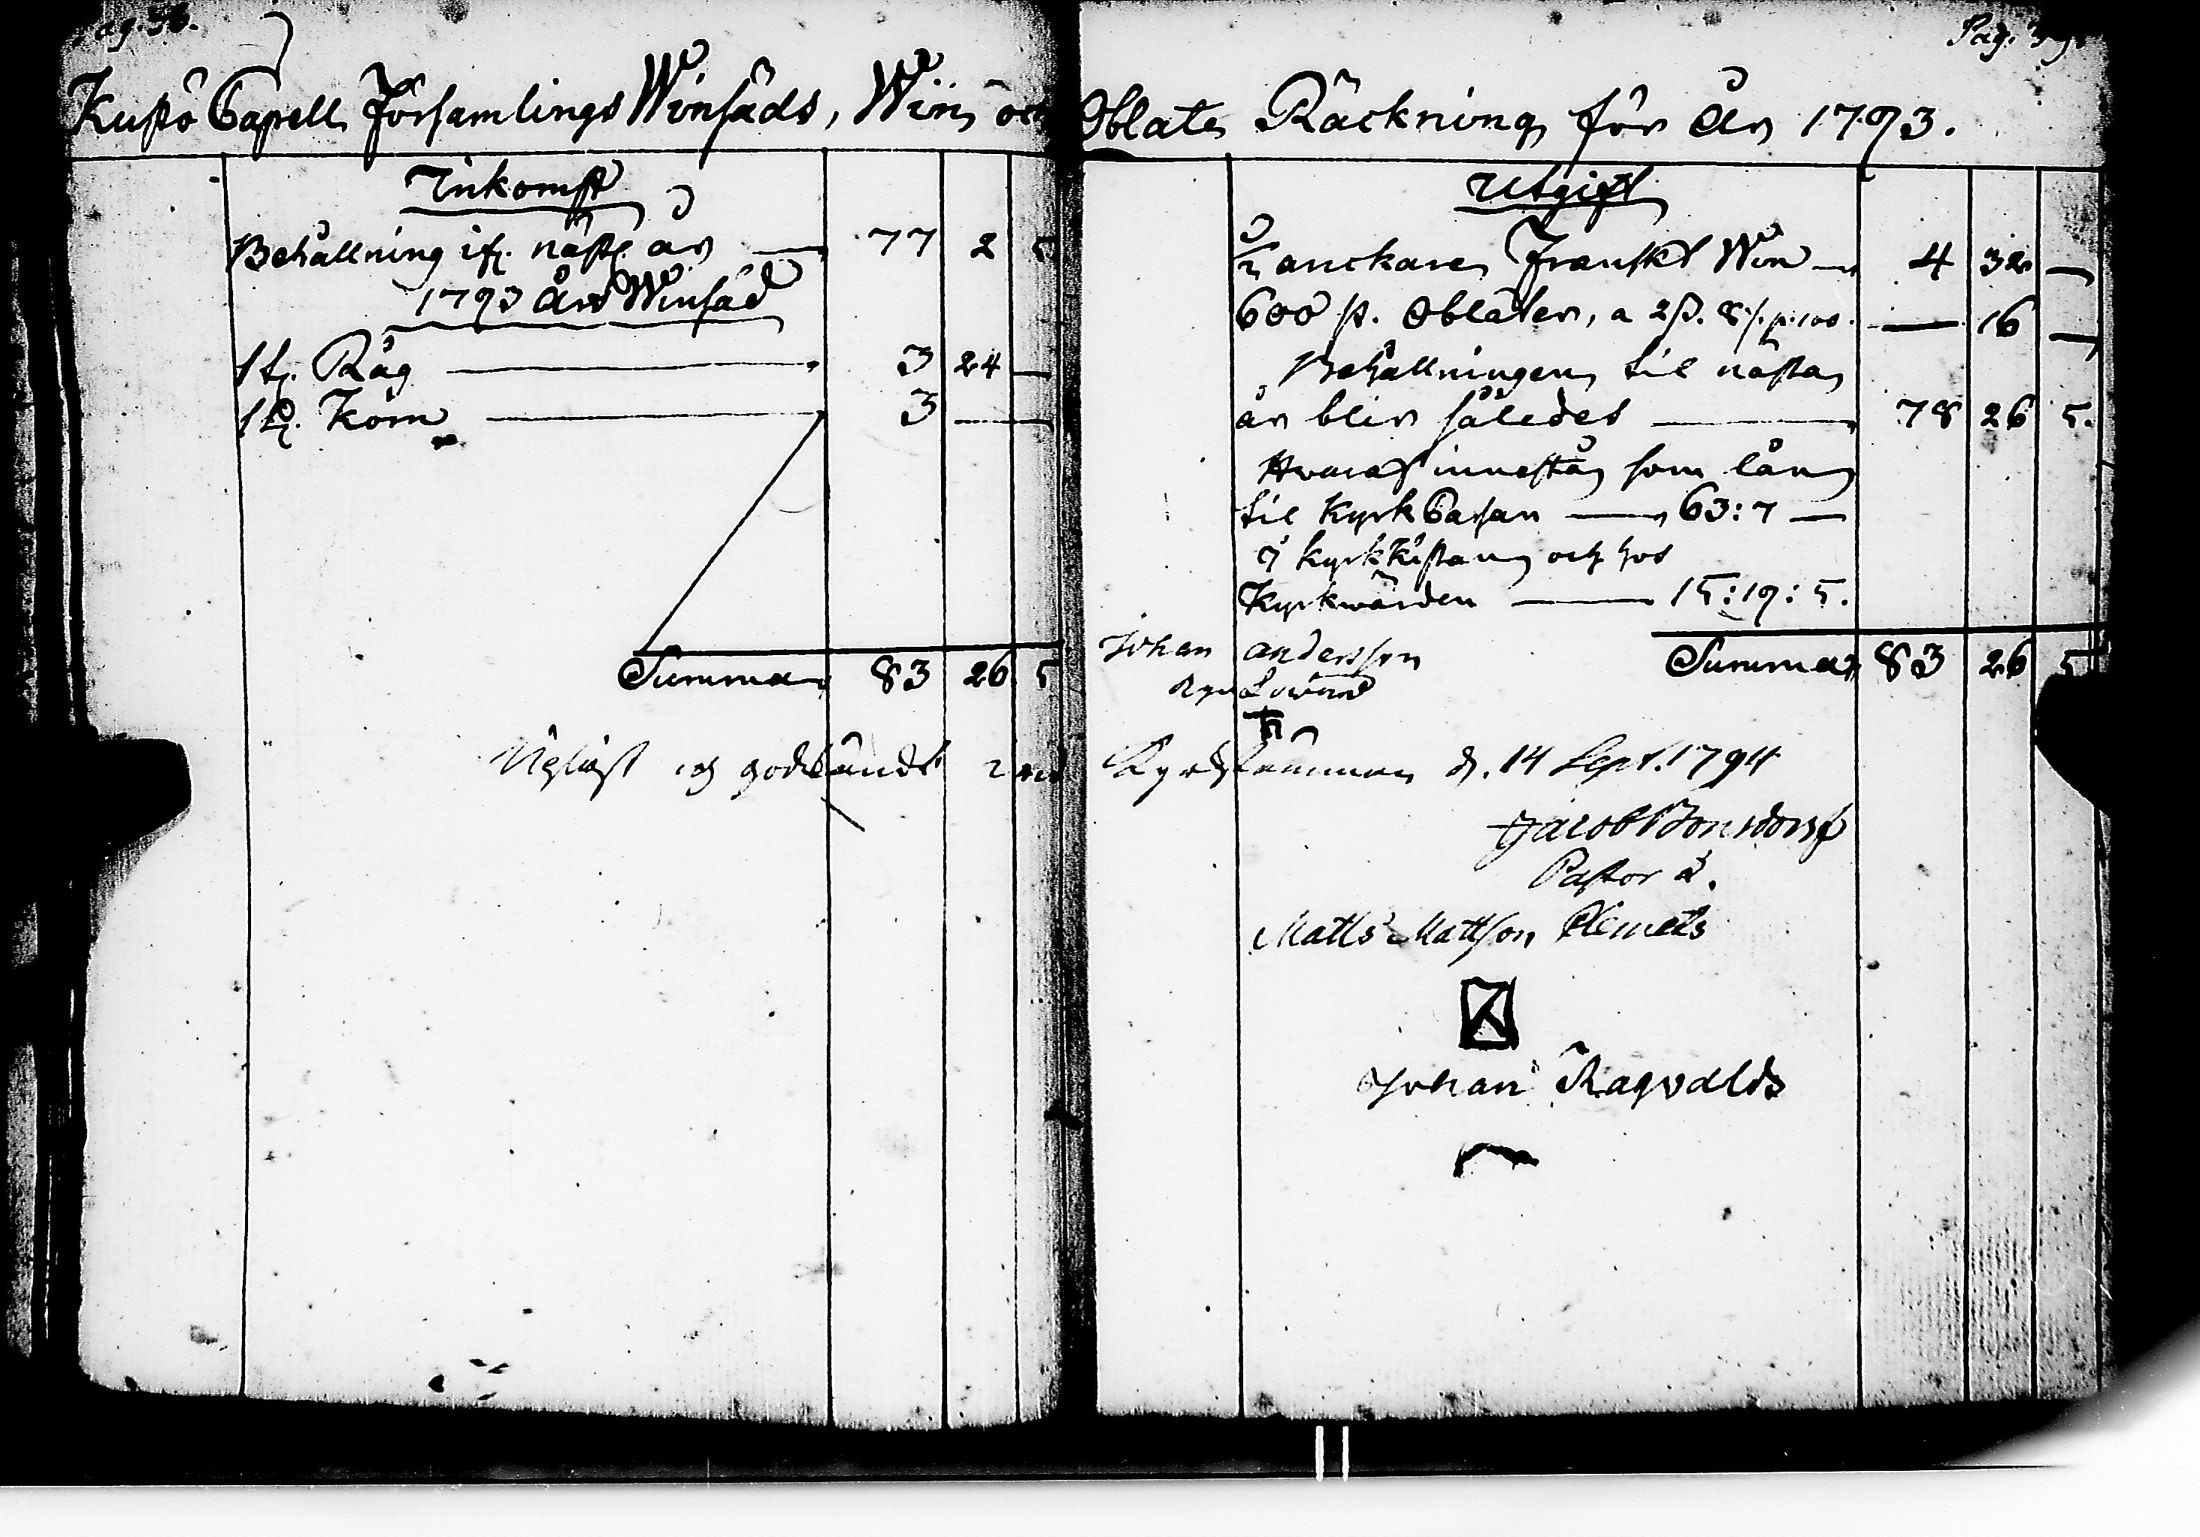 Pag. 38.
Kustö Capell Församlings Winsäds, Win och
Inkomst
Behållning ifr. nästl. år — 77 2 5
1793 års Winsäd
1 t. Råg — 3 24 —
1 t. Korn — 3 — —
Summa 83 26 5
Upläst och godkändt i
Pag. 39.
Oblate Räckning för År 1793.
Utgift
1/2 anckare Franskt Win — 4 32 —
600 st. Oblater, a 2ß. 8/. pr 100. — 16 —
Behållningen til nästa
år blir således — 78 26 5.
Hvaraf innestå som lån
til Kyrk Cassan — 63:7 —
I kyrkkistan och hos
Kyrkwärden — 15:19:5.
Summa 83 26 5
Johan andersson
Kyrckstämman d. 14 Sept. 1794
Jacob Bonsdorff
Pastor
Matts Mattson Klemets
Johan Ragvalds